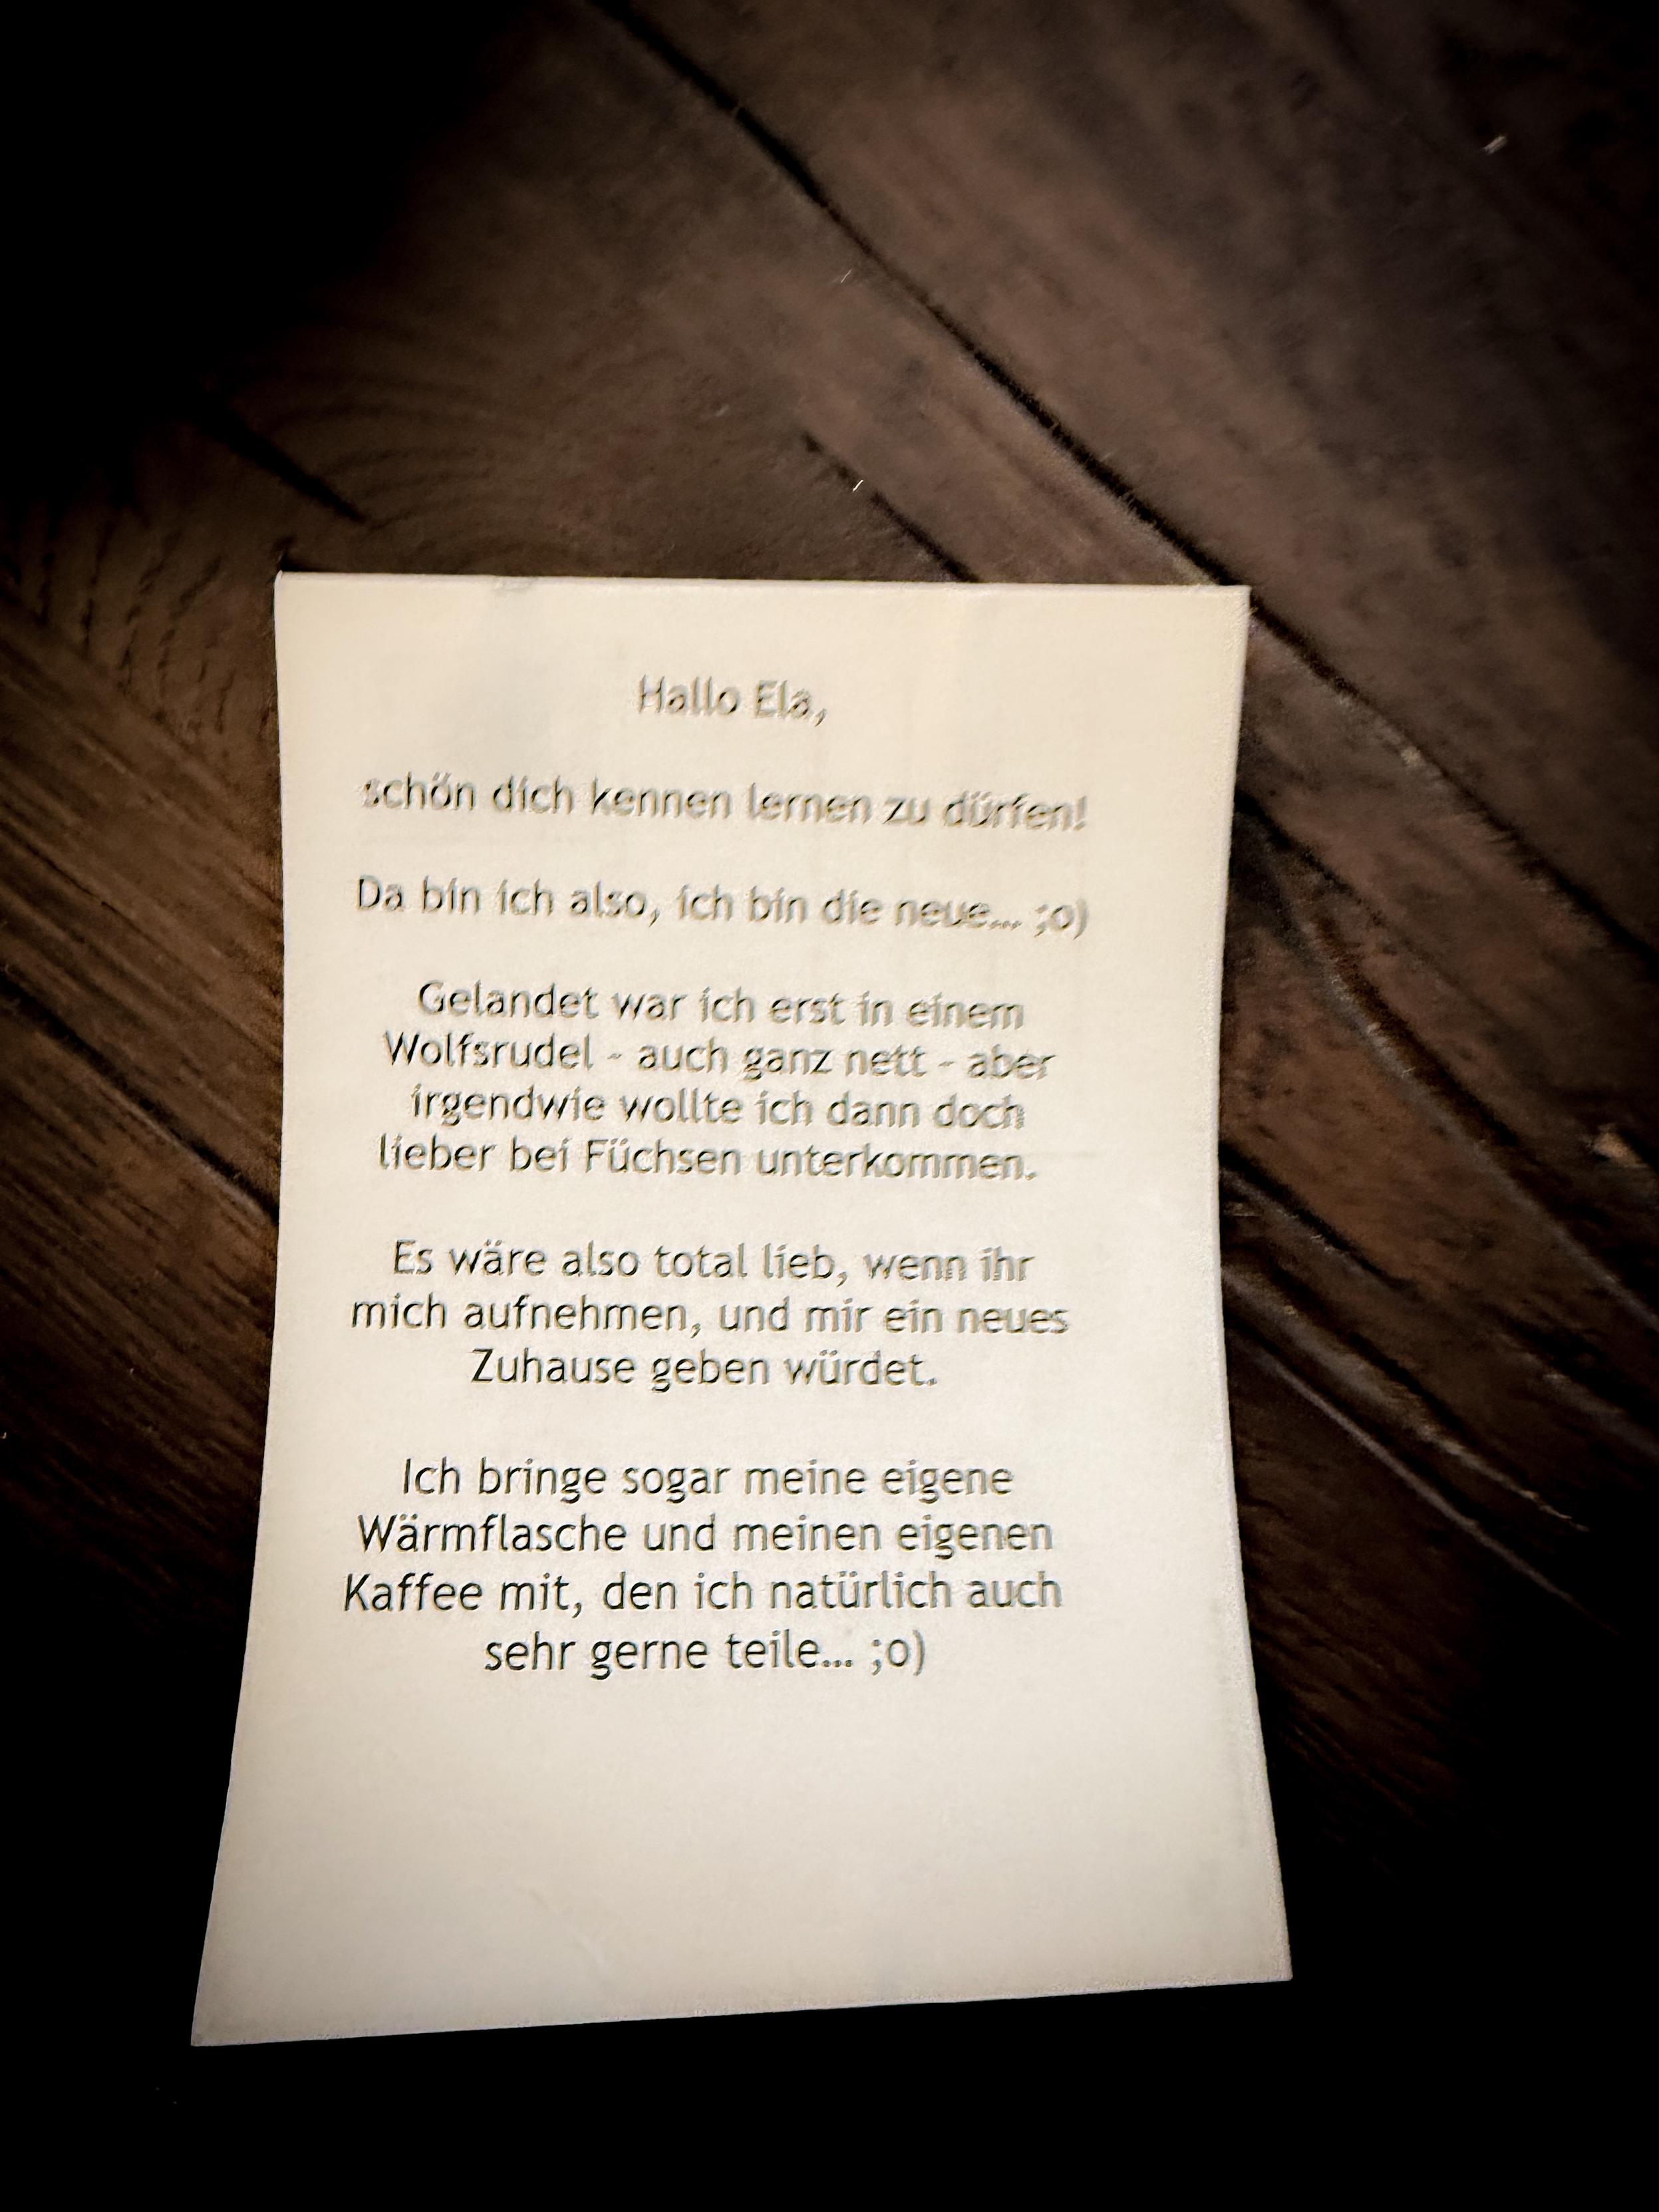 Hallo Ela,
schön dich kennen lernen zu dürfen!
Da bin ich also, ich bin die neue... ;o)
Gelandet war ich erst in einem
Wolfsrudel - auch ganz nett - aber
irgendwie wollte ich dann doch
lieber bei Füchsen unterkommen.
Es wäre also total lieb, wenn ihr
mich aufnehmen, und mir ein neues
Zuhause geben würdet.
Ich bringe sogar meine eigene
Wärmflasche und meinen eigenen
Kaffee mit, den ich natürlich auch
sehr gerne teile... ;o)